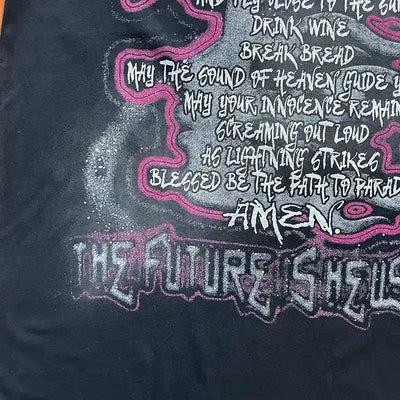 AND FLY CLOSE TO THE SUN
DRINK WINE
BREAK BREAD
MAY THE SOUND OF HEAVEN GUIDE Y
MAY YOUR INNOCENCE REMAIN
SCREAMING OUT LOUD
AS LIGHTNING STRIKES
BLESSED BE THE PATH TO PARAD
AMEN.
THE FUTURE IS HEUS